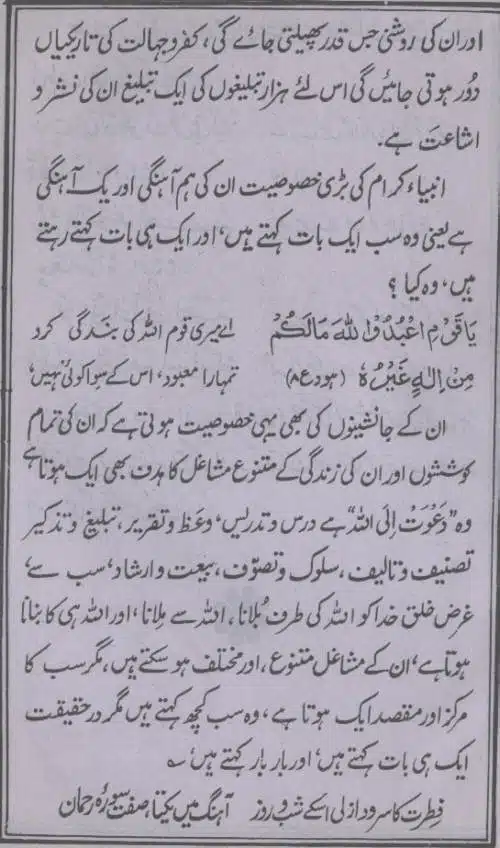 اور ان کی روشنی جس قدر پھیلتی جائے گی، کفر و جہالت کی تاریکیاں
دور ہوتی جائیں گی اس لئے ہزار تبلیغوں کی ایک تبلیغ ان کی نشر و
اشاعت ہے۔
انبیاء کرام کی بڑی خصوصیت ان کی ہم آہنگی اور یک آہنگی
ہے یعنی وہ سب ایک بات کہتے ہیں، اور ایک ہی بات کہتے رہتے
ہیں، وہ کیا؟
یَا قَوْمِ اعْبُدُوا اللهَ مَالَكُمْ اے میری قوم اللہ کی بندگی کرو
مِنْ اِلٰهٍ غَيْرُهٗ (هود ع ۸) تمہارا معبود، اس کے سوا کوئی نہیں،
ان کے جانشینوں کی بھی یہی خصوصیت ہوتی ہے کہ ان کی تمام
کوششوں اور ان کی زندگی کے متنوع مشاغل کا ہدف بھی ایک ہوتا ہے
وہ "دَعْوَتْ اِلَی اللہ" ہے درس و تدریس، وعظ و تقریر، تبلیغ و تذکیر
تصنیف و تالیف، سلوک و تصوّف، بیعت و ارشاد، سب سے
غرض خلق خدا کو اللہ کی طرف بُلانا، اللہ سے مِلانا، اور اللہ ہی کا بنانا
ہوتا ہے، ان کے مشاغل متنوع، اور مختلف ہو سکتے ہیں، مگر سب کا
مرکز اور مقصد ایک ہوتا ہے، وہ سب کچھ کہتے ہیں مگر در حقیقت
ایک ہی بات کہتے ہیں، اور بار بار کہتے ہیں، ؎
فطرت کا سرود ازلی اسکے شب و روز آہنگ میں یکتا، صفت سورۂ رحمان